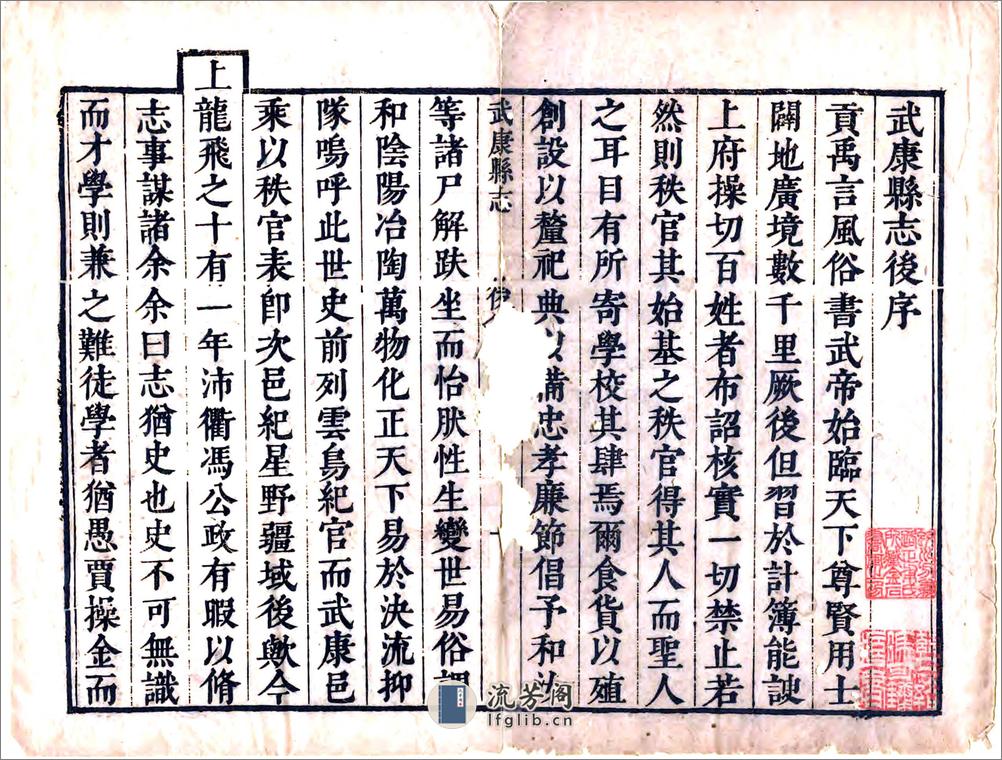 武康縣志後序
貢禹言風俗書武帝始臨天下尊賢用士
闢地廣境數千里厥後但習於計簿能謏
上府操切百姓者布詔核實一切禁止若
然則秩官其始基之秩官得其人而聖人
之耳目有所寄學校其肆焉爾食貨以殖
創設以釐祀典忠孝廉節倡予和
武康縣志
等諸尸解趺坐而怡肰性生變世易俗調
和陰陽冶陶萬物化正天下易於決流抑
隊嗚呼此世史前列雲鳥紀官而武康邑
乘以秩官表卽次邑紀星野疆域後歟今
上龍飛之十有一年沛衢馮公政有暇以脩
志事謀諸余余曰志猶史也史不可無識
而才學則兼之難徒學者猶愚賈操金而
流芳阁
lfglib.cn